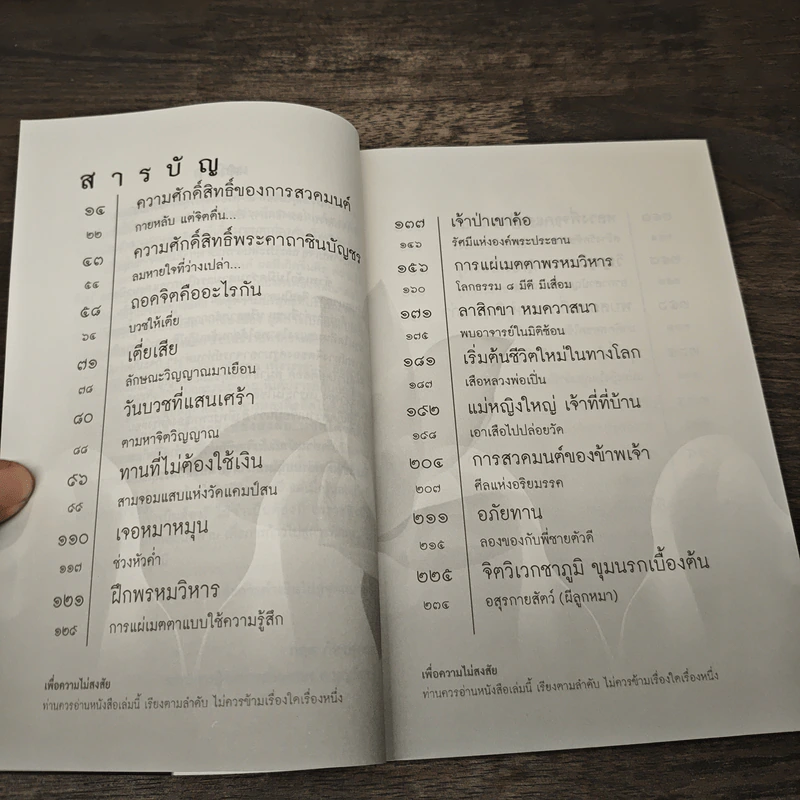 สารบัญ
๑๔ ความศักดิ์สิทธิ์ของการสวดมนต์
๒๒ กายหลับ แต่จิตตื่น...
๔๓ ความศักดิ์สิทธิ์พระคาถาชินบัญชร
๕๔ ลมหายใจที่ว่างเปล่า...
๕๘ ถอดจิตคืออะไรกัน
๖๔ บวชให้เตี่ย
๗๑ เตี่ยเสีย
๗๘ ลักษณะวิญญาณมาเยือน
๘๐ วันบวชที่แสนเศร้า
๘๘ ตามหาจิตวิญญาณ
๙๖ ทานที่ไม่ต้องใช้เงิน
๙๙ สามจอมแสบแห่งวัดแคมป์สน
๑๑๐ เจอหมาหมุน
๑๑๗ ช่วงหัวค่ำ
๑๒๑ ฝึกพรหมวิหาร
๑๒๙ การแผ่เมตตาแบบใช้ความรู้สึก
เพื่อความไม่สงสัย
ท่านควรอ่านหนังสือเล่มนี้ เรียงตามลำดับ ไม่ควรข้ามเรื่องใดเรื่องหนึ่ง
๑๓๗ เจ้าป่าเขาค้อ
๑๔๖ รัศมีแห่งองค์พระประธาน
๑๕๖ การแผ่เมตตาพรหมวิหาร
๑๖๐ โลกธรรม ๘ มีดี มีเสื่อม
๑๗๑ ลาสิกขา หมดวาสนา
๑๗๕ พบอาจารย์ในมิติซ้อน
๑๘๑ เริ่มต้นชีวิตใหม่ในทางโลก
๑๘๗ เสือหลวงพ่อเปิ่น
๑๙๒ แม่หญิงใหญ่ เจ้าที่ที่บ้าน
๑๙๘ เอาเสือไปปล่อยวัด
๒๐๔ การสวดมนต์ของข้าพเจ้า
๒๐๗ ศีลแห่งอริยมรรค
๒๑๑ อภัยทาน
๒๑๕ ลองของกับพี่ชายตัวดี
๒๒๕ จิตวิเวกชาภูมิ ขุมนรกเบื้องต้น
๒๓๔ อสุรกายสัตว์ (ผีลูกหมา)
เพื่อความไม่สงสัย
ท่านควรอ่านหนังสือเล่มนี้ เรียงตามลำดับ ไม่ควรข้ามเรื่องใดเรื่องหนึ่ง